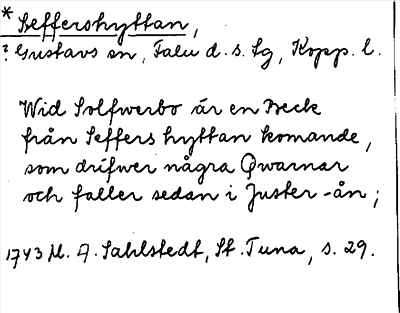 * Seffershyttan,
? Gustavs sn, Falu d. s. lg, Kopp. l.
Wid Solfwerbo är en Beck
från Seffers hyttan komande,
som drifwer några Qwarnar
och faller sedan i Juster-ån;
1743 M. A. Sahlstedt, St. Tuna, s. 29.